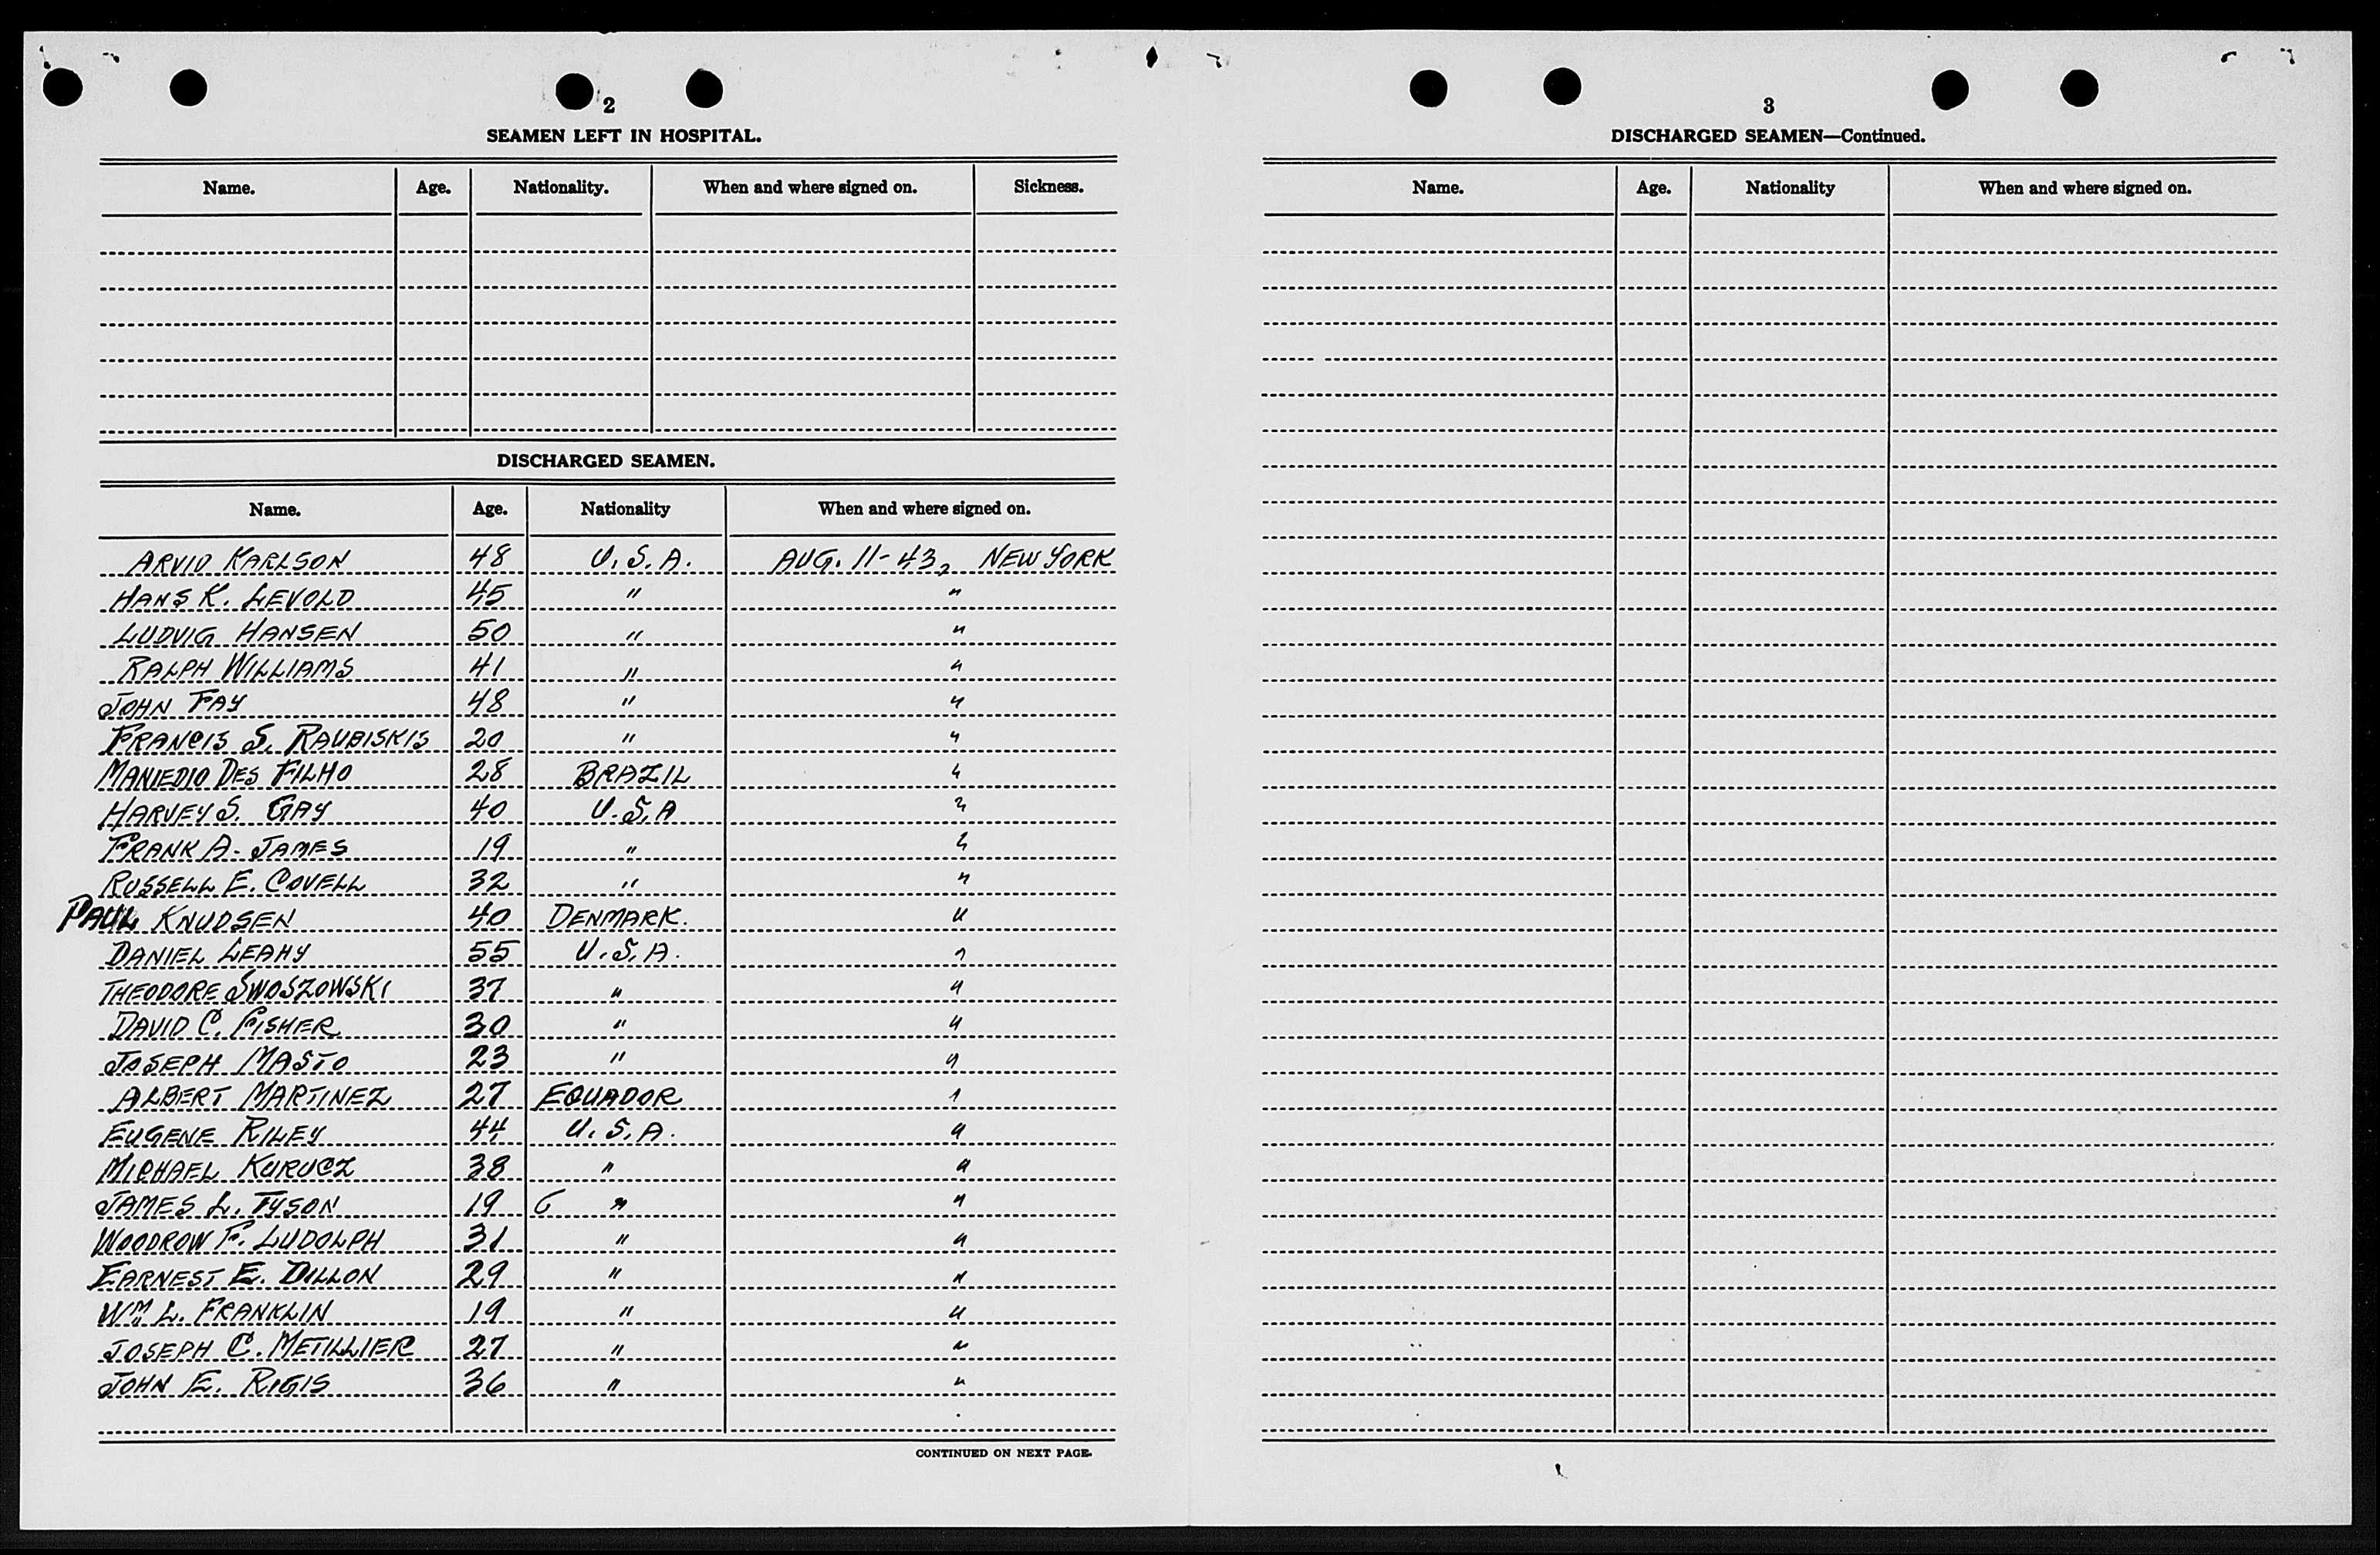 2
SEAMEN LEFT IN HOSPITAL.
Name. Age. Nationality. When and where signed on. Sickness.
DISCHARGED SEAMEN.
Name. Age. Nationality When and where signed on.
ARVID KARLSON 48 U.S.A. AUG. 11-43, NEW YORK
HANS K. LEVOLD 45 " "
LUDVIG HANSEN 50 " "
RALPH WILLIAMS 41 " "
JOHN FAY 48 " "
FRANCIS S. RAUBISKIS 20 " "
MANIEDIO DES FILHO 28 BRAZIL "
HARVEY S. GAY 40 U.S.A "
FRANK A. JAMES 19 " "
RUSSELL E. COVELL 32 " "
PAUL KNUDSEN 40 DENMARK. "
DANIEL LEAHY 55 U.S.A. "
THEODORE SWOSZOWSKI 37 " "
DAVID C. FISHER 30 " "
JOSEPH MASTO 23 " "
ALBERT MARTINEZ 27 EQUADOR "
EUGENE RILEY 44 U.S.A. "
MICHAEL KURUCZ 38 " "
JAMES L. TYSON 19 " "
WOODROW F. LUDOLPH 31 " "
EARNEST E. DILLON 29 " "
WM L. FRANKLIN 19 " "
JOSEPH C. METILLIER 27 " "
JOHN E. RIGIS 36 " "
CONTINUED ON NEXT PAGE.
3
DISCHARGED SEAMEN—Continued.
Name. Age. Nationality When and where signed on.